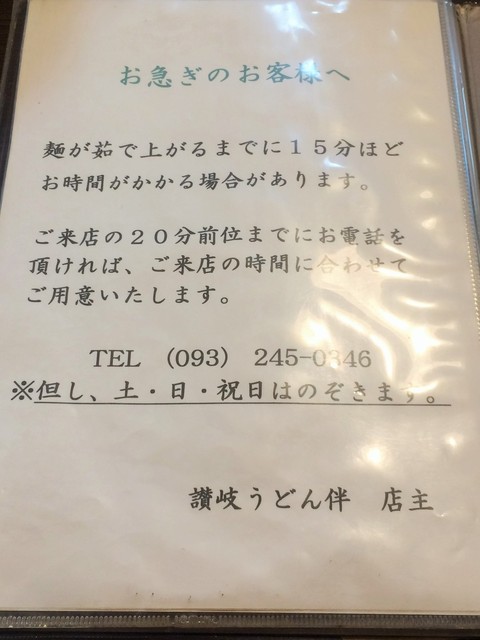 お急ぎのお客様へ
麺が茹で上がるまでに１５分ほど
お時間がかかる場合があります。
ご来店の２０分前位までにお電話を
頂ければ、ご来店の時間に合わせて
ご用意いたします。
TEL （093） 245-0346
※但し、土・日・祝日はのぞきます。
讃岐うどん伴 店主